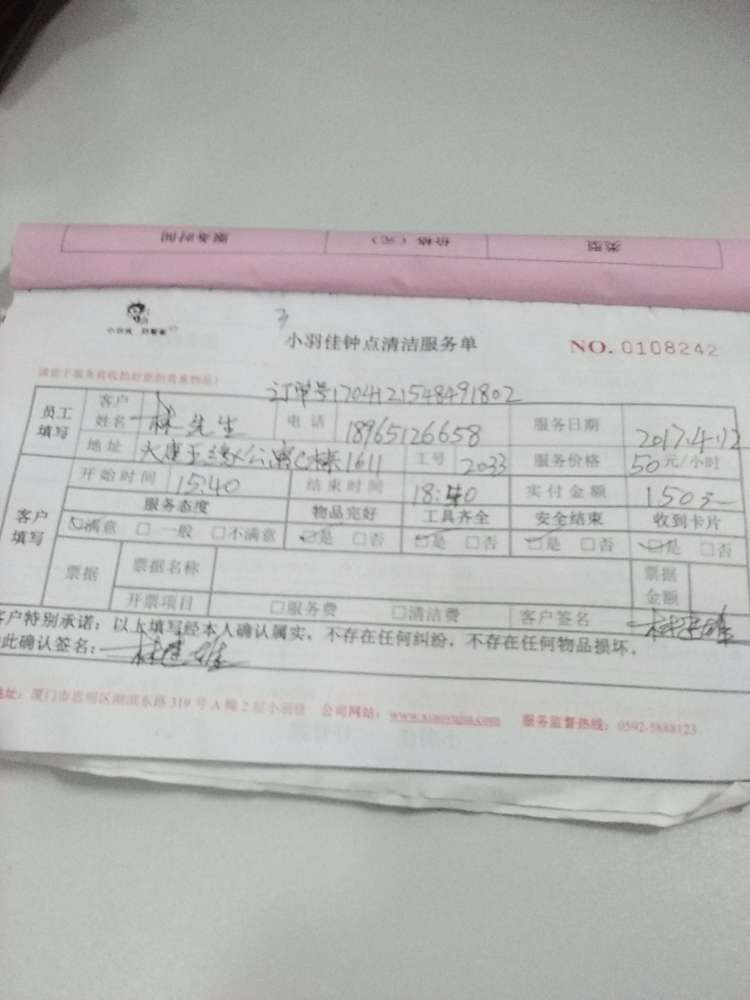 服务时间 价格（元） 类型
小羽佳
小羽佳钟点清洁服务单 NO. 0108242
订单号1704121548491802
员工填写 客户姓名 林先生 电话 18965126658 服务日期 2017.4.12
地址 1611 工号 2033 服务价格 50元/小时
客户填写 开始时间 15:40 结束时间 18:40 实付金额 150元
服务态度 物品完好 工具齐全 安全结束 收到卡片
☑满意 □一般 □不满意 ☑是 □否 ☑是 □否 ☑是 □否 ☑是 □否
票据 票据名称 票据金额
开票项目 □服务费 □清洁费 客户签名
客户特别承诺：以上填写经本人确认属实，不存在任何纠纷，不存在任何物品损坏。
此确认签名：
地址：厦门市思明区湖滨东路319号A幢2层小羽佳 公司网站：www.xiaoyujia.com 服务监督热线：0592-5888123